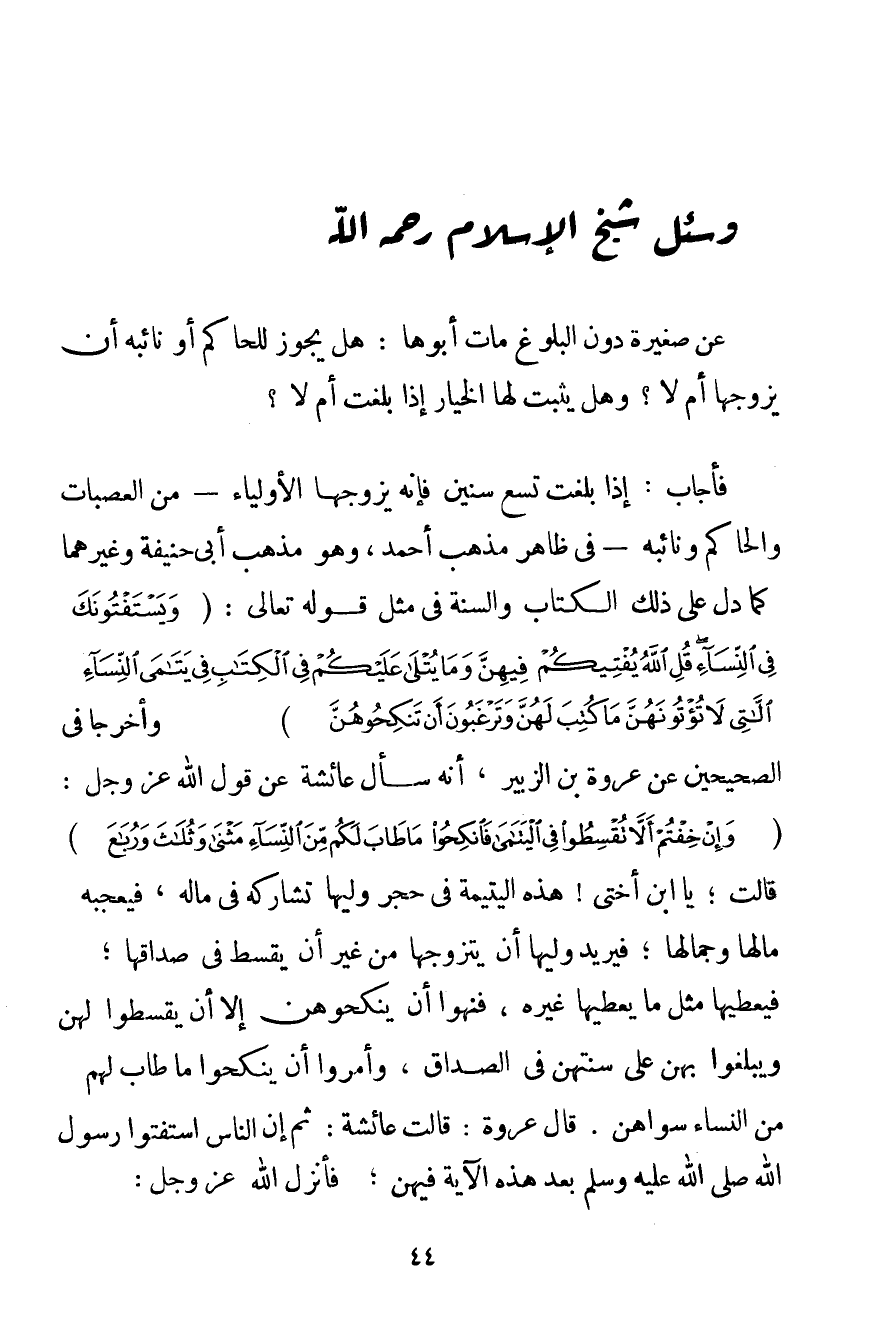 وسئل شيخ الإسلام رحمه الله
عن صغيرة دون البلوغ مات أبوها : هل يجوز للحاكم أو نائبه أن
يزوجها أم لا ؟ وهل يثبت لها الخيار إذا بلغت أم لا ؟
فأجاب : إذا بلغت تسع سنين فإنه يزوجها الأولياء – من العصبات
والحاكم ونائبه – فى ظاهر مذهب أحمد ، وهو مذهب أبى حنيفة وغيرهما
كما دل على ذلك الكتاب والسنة فى مثل قوله تعالى : ( وَيَسْتَفْتُونَكَ
فِى ٱلنِّسَآءِ ۖ قُلِ ٱللَّهُ يُفْتِيكُمْ فِيهِنَّ وَمَا يُتْلَىٰ عَلَيْكُمْ فِى ٱلْكِتَٰبِ فِى يَتَٰمَى ٱلنِّسَآءِ
ٱلَّٰتِى لَا تُؤْتُونَهُنَّ مَا كُتِبَ لَهُنَّ وَتَرْغَبُونَ أَن تَنكِحُوهُنَّ ) وأخرجا فى
الصحيحين عن عروة بن الزبير ، أنه سأل عائشة عن قول الله عز وجل :
( وَإِنْ خِفْتُمْ أَلَّا تُقْسِطُوا۟ فِى ٱلْيَتَٰمَىٰ فَٱنكِحُوا۟ مَا طَابَ لَكُم مِّنَ ٱلنِّسَآءِ مَثْنَىٰ وَثُلَٰثَ وَرُبَٰعَ )
قالت ؛ يا ابن أختى ! هذه اليتيمة فى حجر وليها تشاركه فى ماله ، فيعجبه
مالها وجمالها ؛ فيريد وليها أن يتزوجها من غير أن يقسط فى صداقها ؛
فيعطيها مثل ما يعطيها غيره ، فنهوا أن ينكحوهن إلا أن يقسطوا لهن
ويبلغوا بهن على سنتهن فى الصداق ، وأمروا أن ينكحوا ما طاب لهم
من النساء سواهن . قال عروة : قالت عائشة : ثم إن الناس استفتوا رسول
الله صلى الله عليه وسلم بعد هذه الآية فيهن ؛ فأنزل الله عز وجل :
٤٤